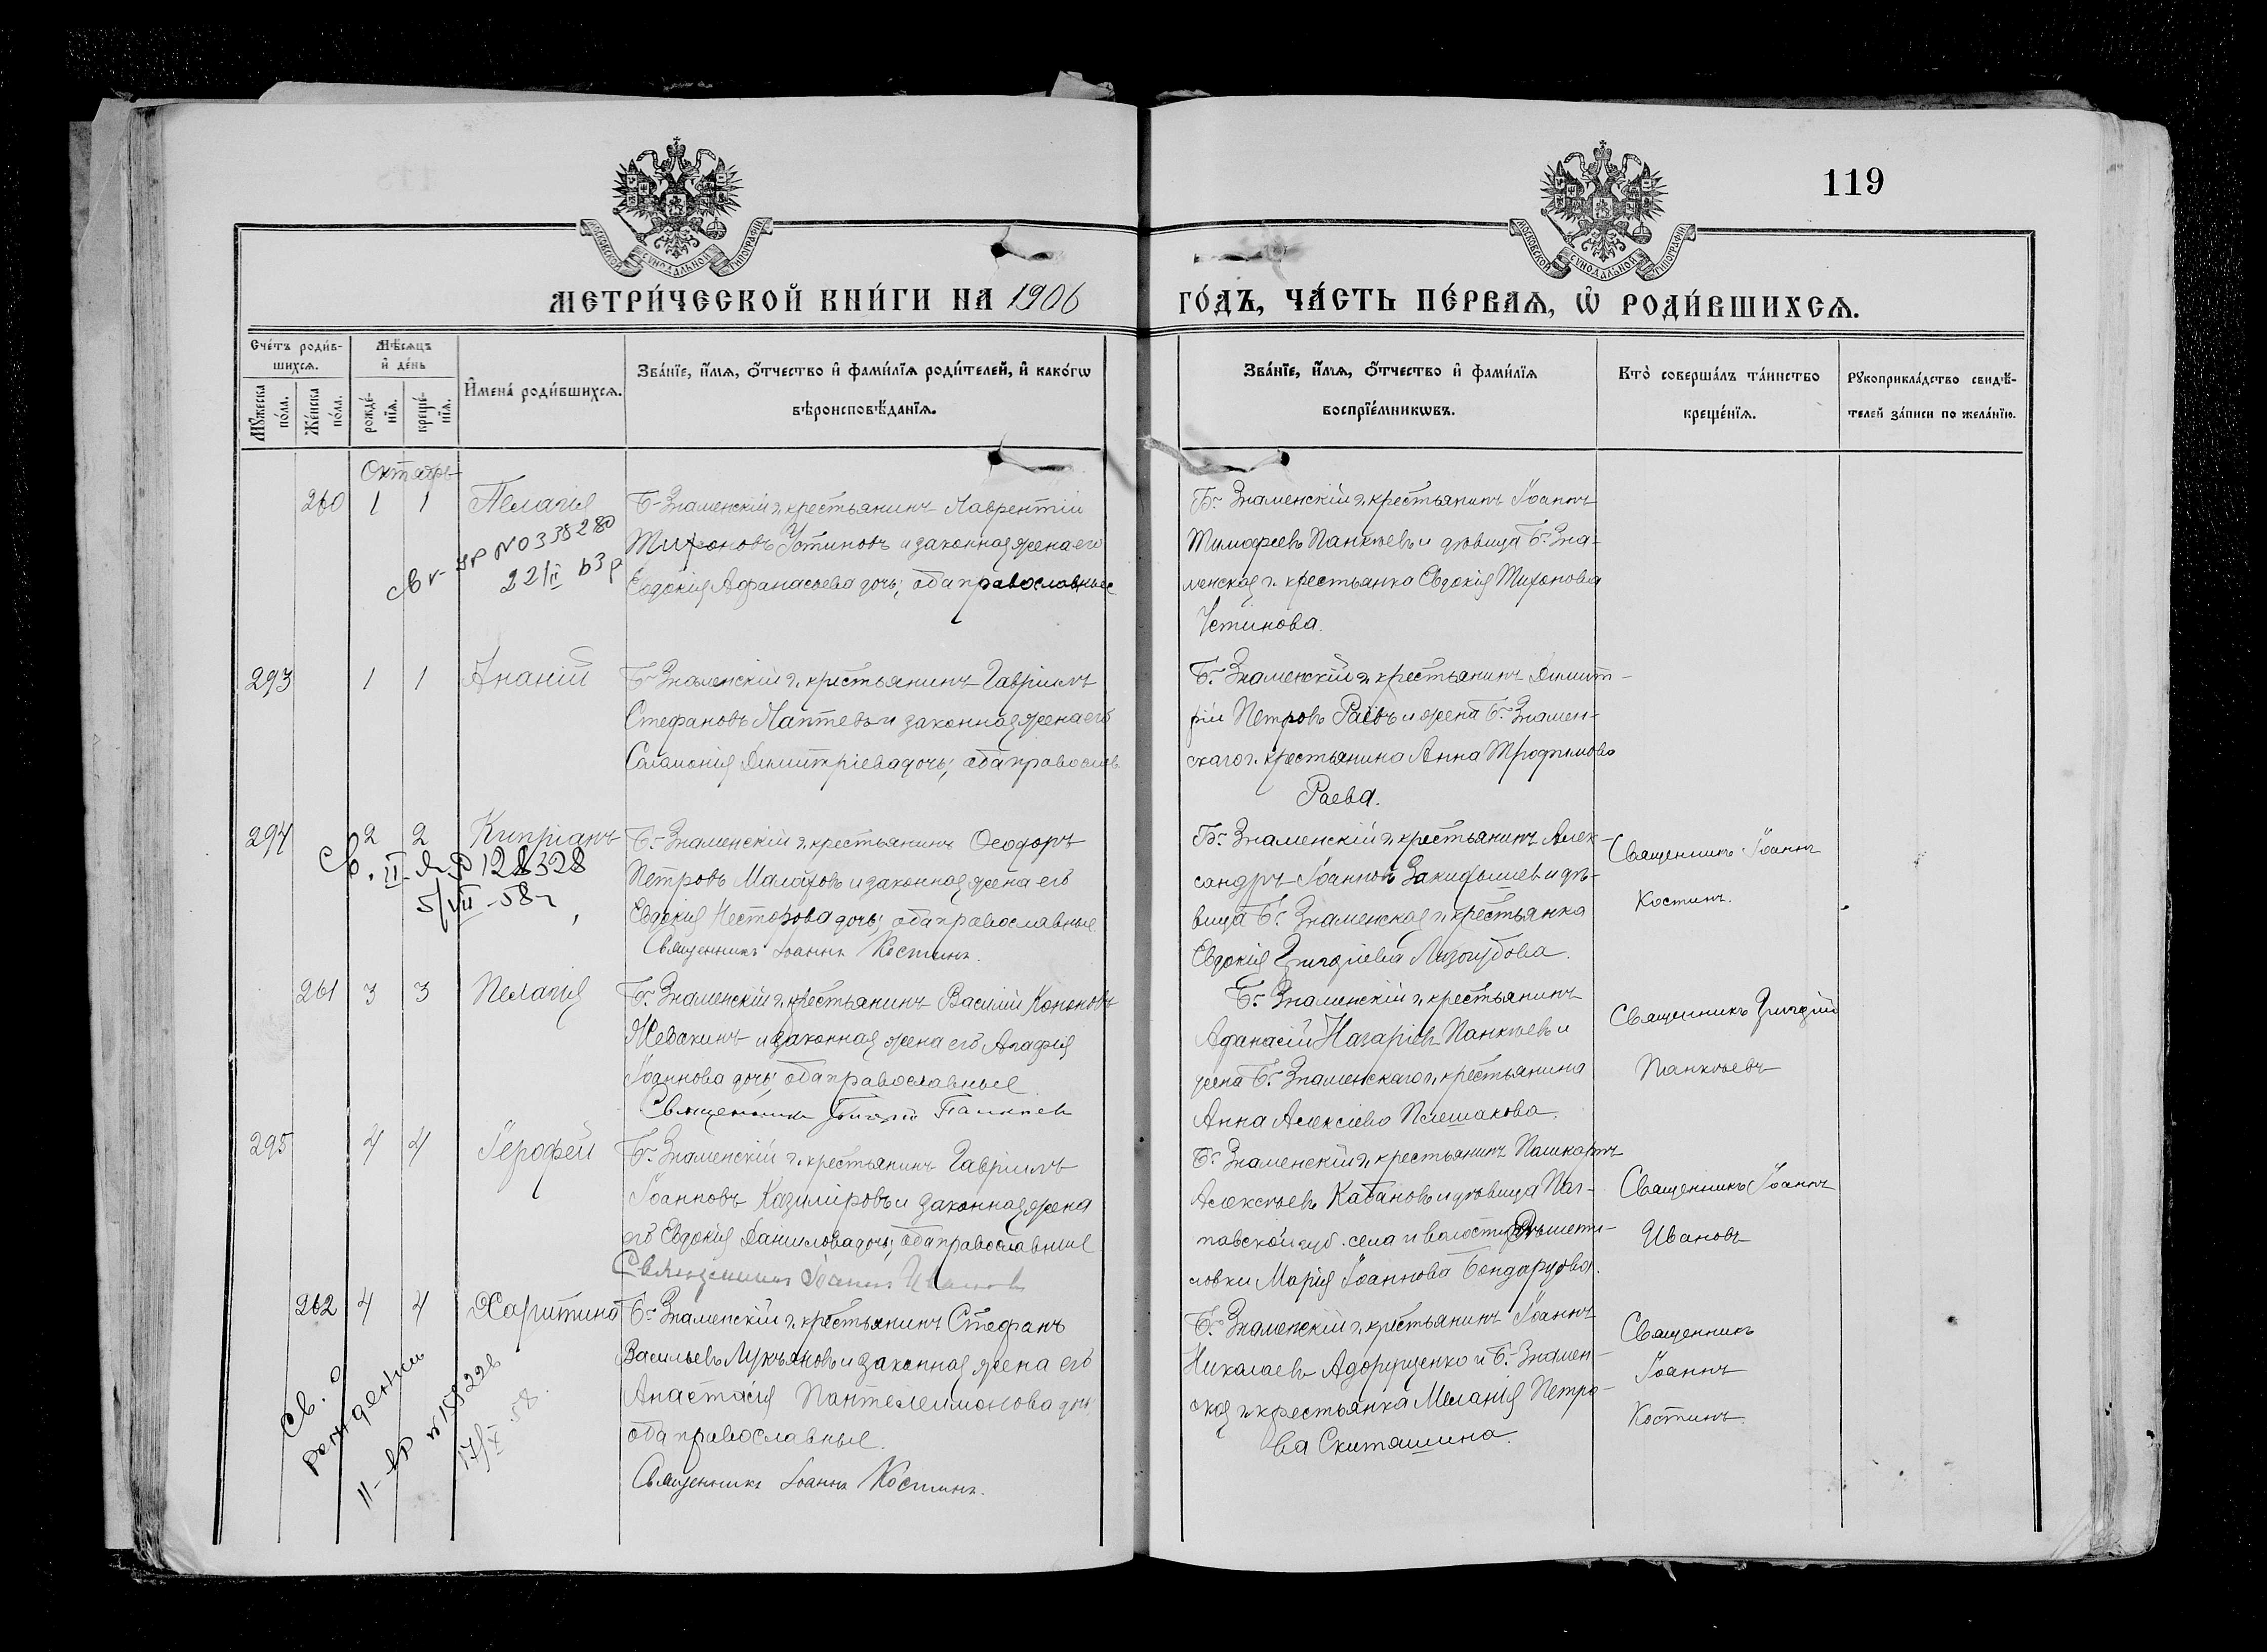 119
МОСКОВСКОЙ СѴНОДАЛЬНОЙ ТИПОГРАФІИ
МОСКОВСКОЙ СѴНОДАЛЬНОЙ ТИПОГРАФІИ
МЕТРИ́ЧЕСКОЙ КНИ́ГИ НА 1906
ГО́ДЪ, ЧА́СТЬ ПЕ́РВАѦ, Ѽ РОДИ́ВШИХСѦ.
Сче́тъ роди́в-
шихсѧ.
Мꙋ́жеска по́ла.
Же́нска по́ла.
Мѣ́сѧцъ
и҆ де́нь
рожде́-
нїѧ.
креще́-
нїѧ.
И҆мена̀ роди́вшихсѧ.
Зва́нїе, и҆́мѧ, ѻ҆́тчество и҆ фами́лїѧ роди́телей, и҆ како́гѡ
вѣроисповѣ́данїѧ.
Зва́нїе, и҆́мѧ, ѻ҆́тчество и҆ фами́лїѧ
воспрїе́мникѡвъ.
Кто̀ соверша́лъ та́инство
креще́нїѧ.
Рꙋкоприкла́дство свидѣ́-
телей за́писи по жела́нїю.
Октябрь
260 1 1 Пелагія
Б-Знаменскій г. крестьянинъ Лаврентій
Тихоновъ Устиновъ и законная жена его
Евдокія Афанасьева дочь; оба православные
№ 0338280
Б. Знаменскій г. крестьянинъ Іоаннъ
Тимофеевъ Панкѣевъ и дѣвица Б. Зна-
менская г. крестьянка Евдокія Тихонова
Устинова.
293 1 1 Ананій
Б. Знаменскій г. крестьянинъ Гавріилъ
Стефановъ Лаптевъ и законная жена его
Саламонія Димитріева дочь; оба православ
Б. Знаменскій г. крестьянинъ Димит-
рій Петровъ Раевъ и жена Б. Знамен-
скаго г. крестьянина Анна Трофимова
Раева.
294 2 2 Кипріанъ
Св. II-
5/VII-58 г
Б. Знаменскій г. крестьянинъ Ѳеодоръ
Петровъ Малаховъ и законная жена его
Евдокія Несторова дочь; оба православные.
Священникъ Іоаннъ Костинъ.
Б. Знаменскій г. крестьянинъ Алек-
сандръ Іоанновъ и дѣ-
вица Б. Знаменская г. крестьянка
Евдокія Григоріева Лизогубова.
Священникъ Іоаннъ
Костинъ.
261 3 3 Пелагія
Б. Знаменскій г. крестьянинъ Василій Кононовъ
Жевакинъ и законная жена его Агафія
Іоаннова дочь; оба православные
Священникъ Григорій Панкѣевъ
Б. Знаменскій г. крестьянинъ
Афанасій Назаріевъ Панкѣевъ и
жена Б. Знаменскаго г. крестьянина
Анна Алексіева Плешакова.
Священникъ Григорій
Панкѣевъ
295 4 4 Іерофей
Б. Знаменскій г. крестьянинъ Гавріилъ
Іоанновъ Казиміровъ и законная жена
его Евдокія Даніилова дочь; оба православные
Священникъ Іоаннъ Ивановъ
Б. Знаменскій г. крестьянинъ
Алексѣевъ Кабановъ и дѣвица Пол-
тавской губ. села и волости Рѣшети-
ловки Марія Іоаннова Бондарзова.
Священникъ Іоаннъ
Ивановъ
262 4 4 Харитина
Св. о
рождении
17/X-58.
Б. Знаменскій г. крестьянинъ Стефанъ
Васильевъ Лукьяновъ и законная жена его
Анастасія Пантелеимонова дочь
оба православные.
Священникъ Іоаннъ Костинъ.
Б. Знаменскій г. крестьянинъ Іоаннъ
Николаевъ и Б. Знамен-
ская г. крестьянка Меланія Петро-
ва Скиташина.
Священникъ
Іоаннъ
Костинъ.